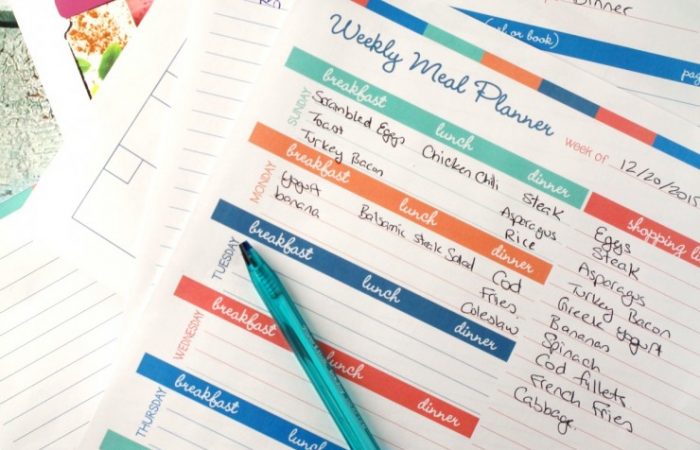 Dinner
or book)
Weekly Meal Planner
week of 12/20/2015
SUNDAY
breakfast lunch dinner
Scrambled Eggs
Toast
Turkey Bacon
Chicken Chili
Steak
Asparagus
Rice
MONDAY
breakfast lunch dinner
yogurt
banana
Balsamic Steak Salad
Cod
Fries
Coleslaw
TUESDAY
breakfast lunch dinner
WEDNESDAY
breakfast lunch dinner
THURSDAY
breakfast
lunch
shopping li
Eggs
Steak
Asparagus
Turkey Bacon
Greek Yogurt
Bananas
Spinach
Cod fillets
French Fries
Cabbage